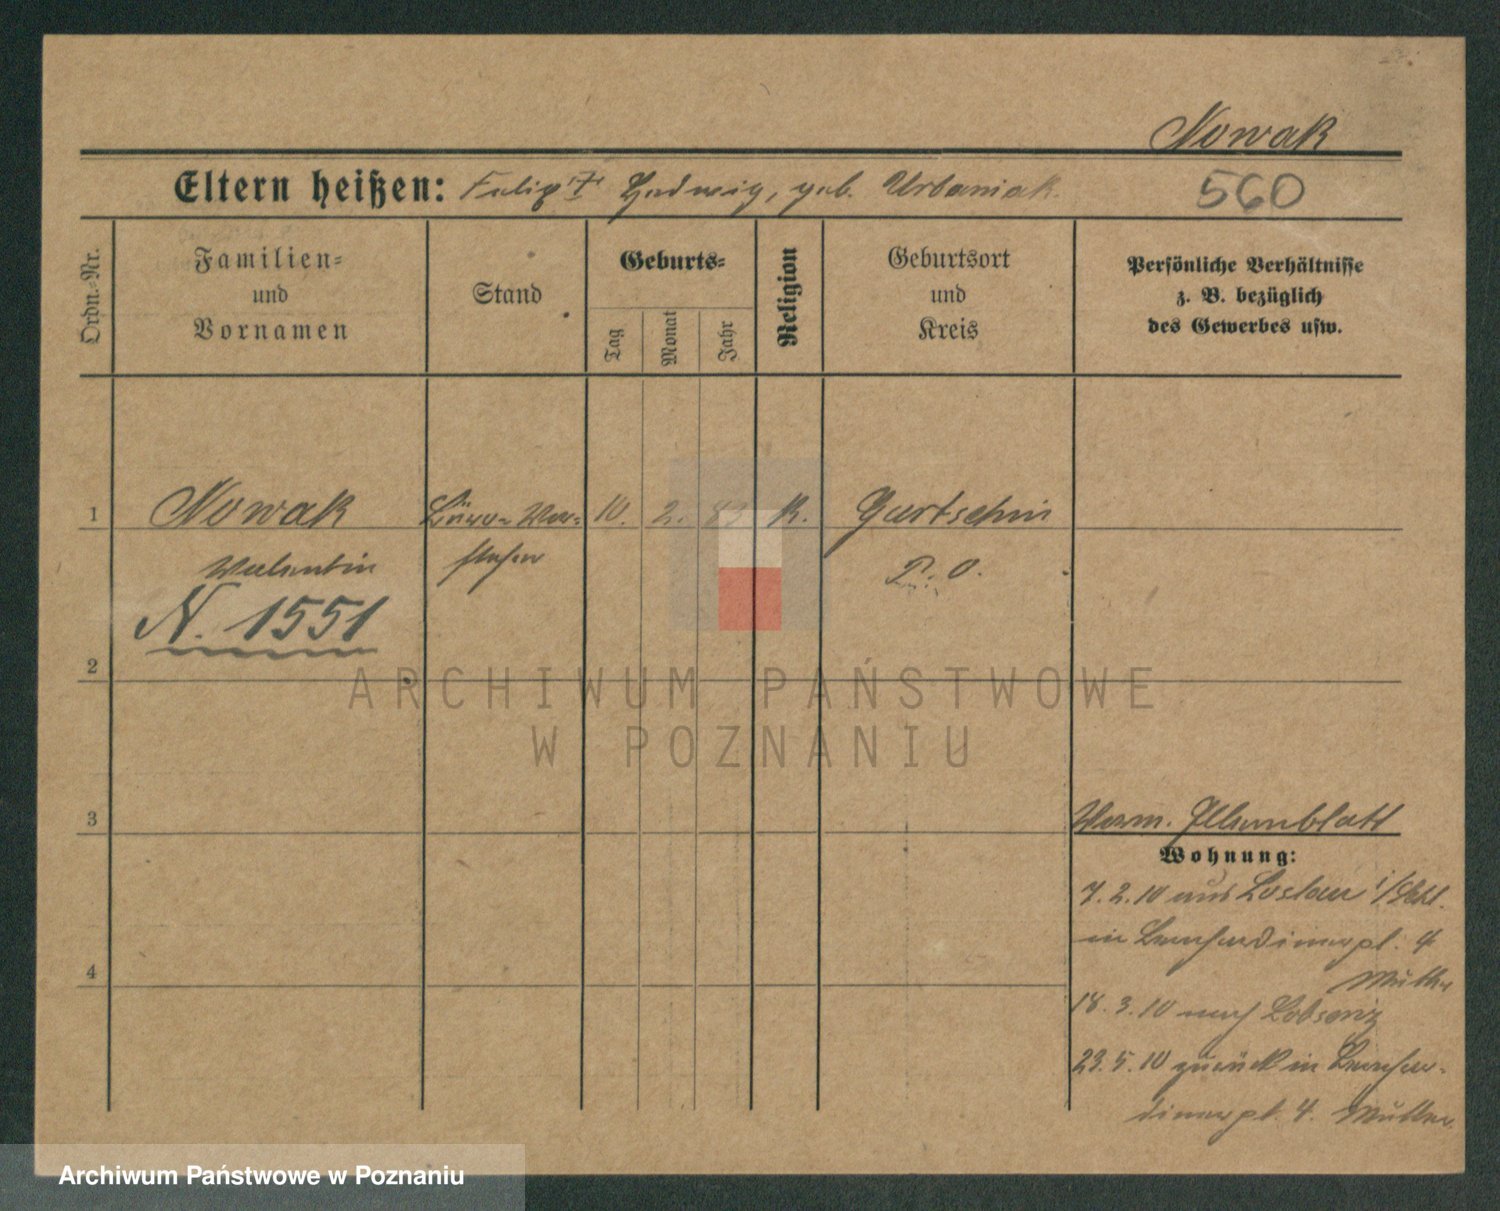 Nowak
Eltern heißen: Felix † Hedwig, geb. Urbaniak.
560
Ordn.-Nr.
Familien-
und
Vornamen
Stand
Geburts-
Tag
Monat
Jahr
Religion
Geburtsort
und
Kreis
Persönliche Verhältnisse
z. B. bezüglich
des Gewerbes usw.
1 Nowak Büro-Vor- 10. 2. K. Gurtschin
Valentin steher P. O.
N. 1551
2
3
Verm. Albumblatt
Wohnung:
7. 2. 10 aus Loslau i/Schl.
in Bernhardinerpl. 4
Mutter
4
18. 3. 10 nach Lobsenz
23. 5. 10 zurück in Bernhar-
dinerpl. 4. Mutter.
ARCHIWUM PAŃSTWOWE
W POZNANIU
Archiwum Państwowe w Poznaniu